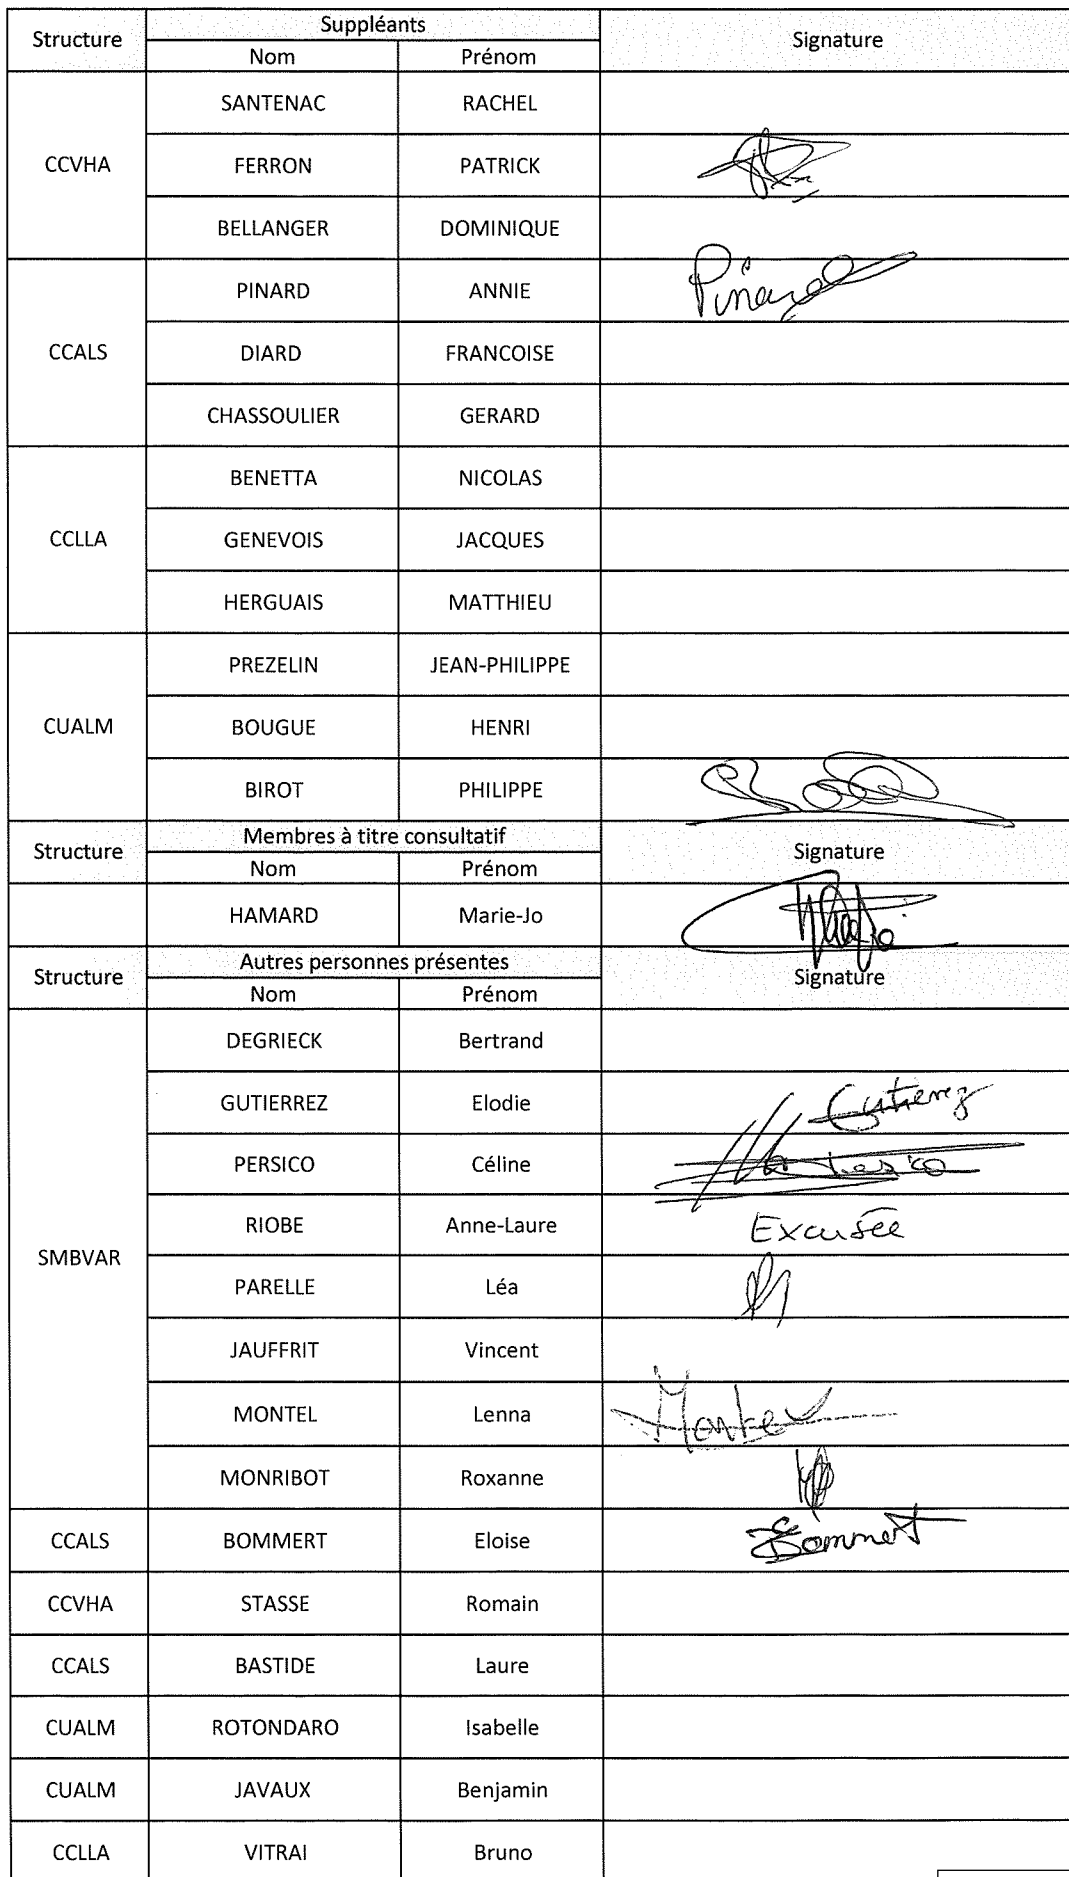 Structure Suppléants Signature
Nom Prénom
CCVHA SANTENAC RACHEL
FERRON PATRICK
BELLANGER DOMINIQUE
CCALS PINARD ANNIE Pinard
DIARD FRANCOISE
CHASSOULIER GERARD
CCLLA BENETTA NICOLAS
GENEVOIS JACQUES
HERGUAIS MATTHIEU
CUALM PREZELIN JEAN-PHILIPPE
BOUGUE HENRI
BIROT PHILIPPE
Structure Membres à titre consultatif Signature
Nom Prénom
HAMARD Marie-Jo
Structure Autres personnes présentes Signature
Nom Prénom
SMBVAR DEGRIECK Bertrand
GUTIERREZ Elodie Gutierrez
PERSICO Céline Persico
RIOBE Anne-Laure Excusée
PARELLE Léa
JAUFFRIT Vincent
MONTEL Lenna Montel
MONRIBOT Roxanne
CCALS BOMMERT Eloise Bommert
CCVHA STASSE Romain
CCALS BASTIDE Laure
CUALM ROTONDARO Isabelle
CUALM JAVAUX Benjamin
CCLLA VITRAI Bruno